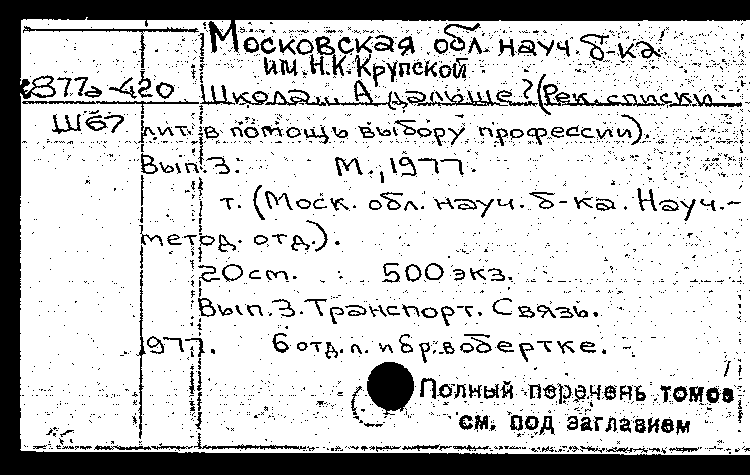 Московская обл. науч. б-ка
им. Н.К. Крупской
877а-420 Школа... А дальше? (Рек. списки
Ш67 лит. в помощь выбору профессии).
Вып. 3. М., 1977.
т. (Моск. обл. науч. б-ка. Науч.-
метод. отд.).
20 см. : 500 экз.
Вып. 3. Транспорт. Связь.
1977. 6 отд. л. и бр. в обертке.
Полный перечень томов
см. под заглавием